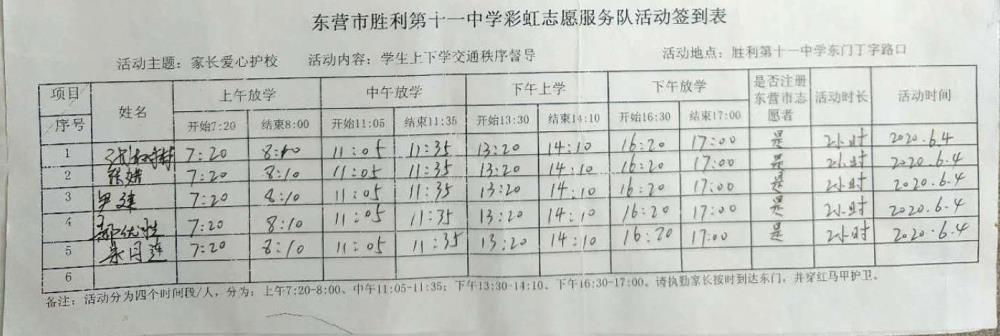 东营市胜利第十一中学彩虹志愿服务队活动签到表
活动主题：家长爱心护校 活动内容：学生上下学交通秩序督导 活动地点：胜利第十一中学东门丁字路口
项目 姓名 上午放学 中午放学 下午上学 下午放学 是否注册东营市志愿者 活动时长 活动时间
序号 开始7:20 结束8:00 开始11:05 结束11:35 开始13:30 结束14:10 开始16:30 结束17:00
1 7:20 8:10 11:05 11:35 13:20 14:10 16:20 17:00 是 2小时 2020.6.4
2 7:20 8:10 11:05 11:35 13:20 14:10 16:20 17:00 是 2小时 2020.6.4
3 尹建 7:20 8:10 11:05 11:35 13:20 14:10 16:20 17:00 是 2小时 2020.6.4
4 7:20 8:10 11:05 11:35 13:20 14:10 16:20 17:00 是 2小时 2020.6.4
5 7:20 8:10 11:05 11:35 13:20 14:10 16:20 17:00 是 2小时 2020.6.4
6
备注：活动分为四个时间段/人，分为：上午7:20-8:00、中午11:05-11:35；下午13:30-14:10、下午16:30-17:00。请执勤家长按时到达东门，并穿红马甲护卫。